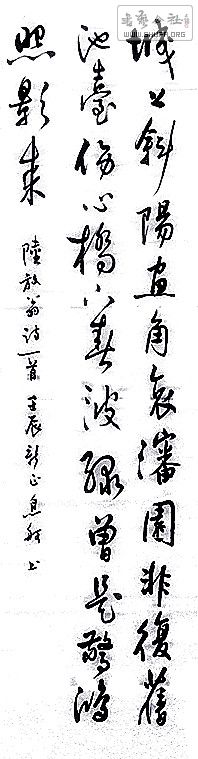 書藝公社
WWW.SHUFA.ORG
城上斜陽画角哀瀋園非復舊
池臺傷心橋下春波綠曾是驚鴻
照影来
陸放翁诗一首 壬辰新正